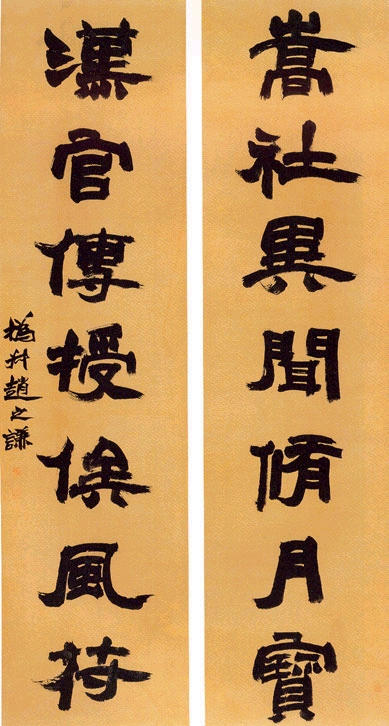 嵩社異聞脩月寶
漢官傳授候風
撝叔趙之謙